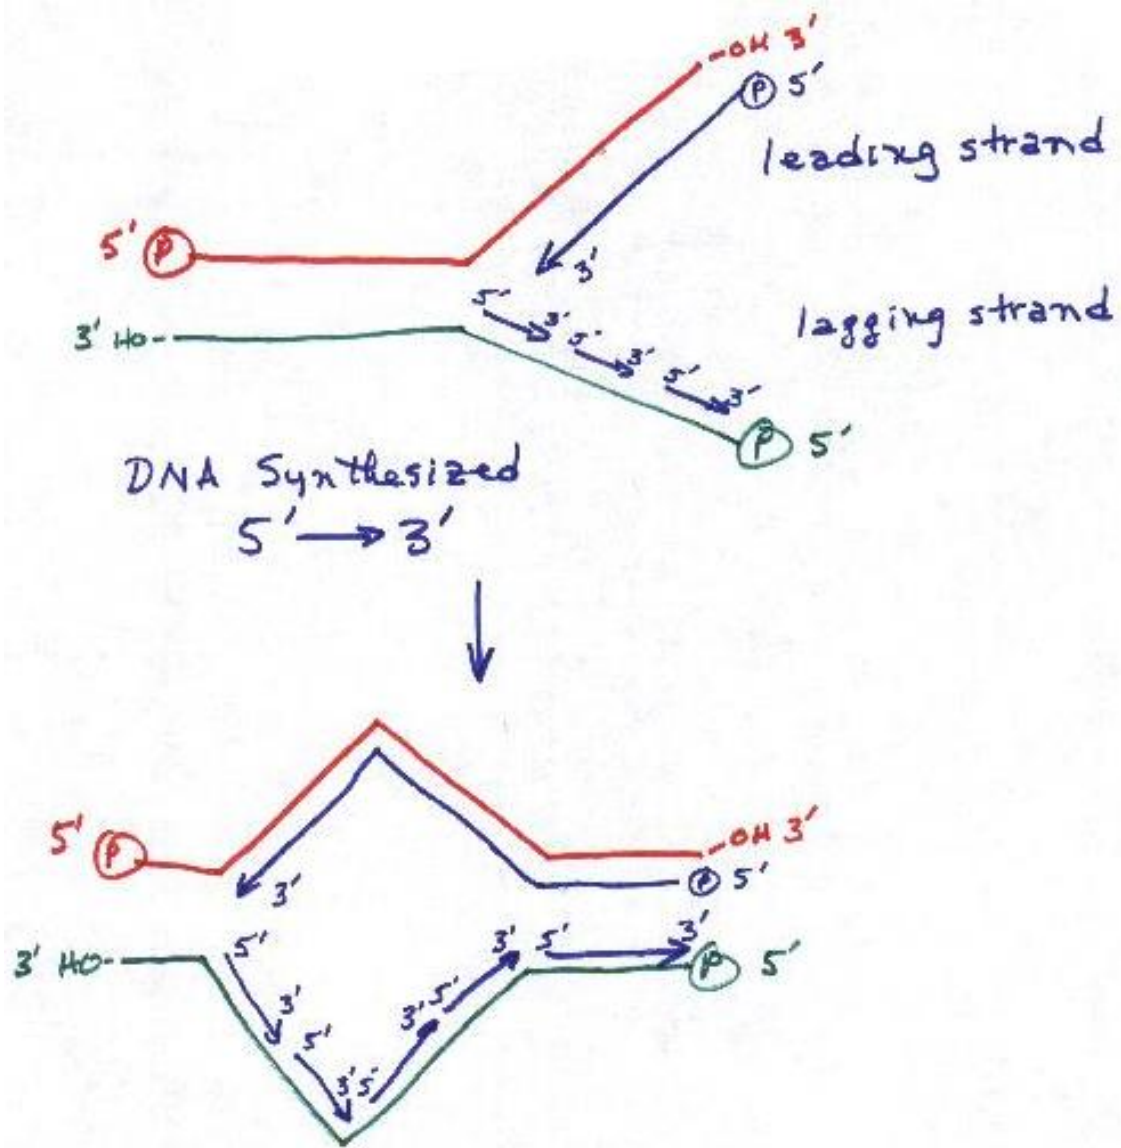 -OH 3'
P 5'
leading strand
5' P
3'
5'
3'
5'
3'
5'
3'
lagging strand
3' HO-
P 5'
DNA Synthesized
5' → 3'
5' P
-OH 3'
P 5'
3'
3' HO-
5'
3'
5'
3'
5'
3'
5'
3'
5'
3'
P 5'